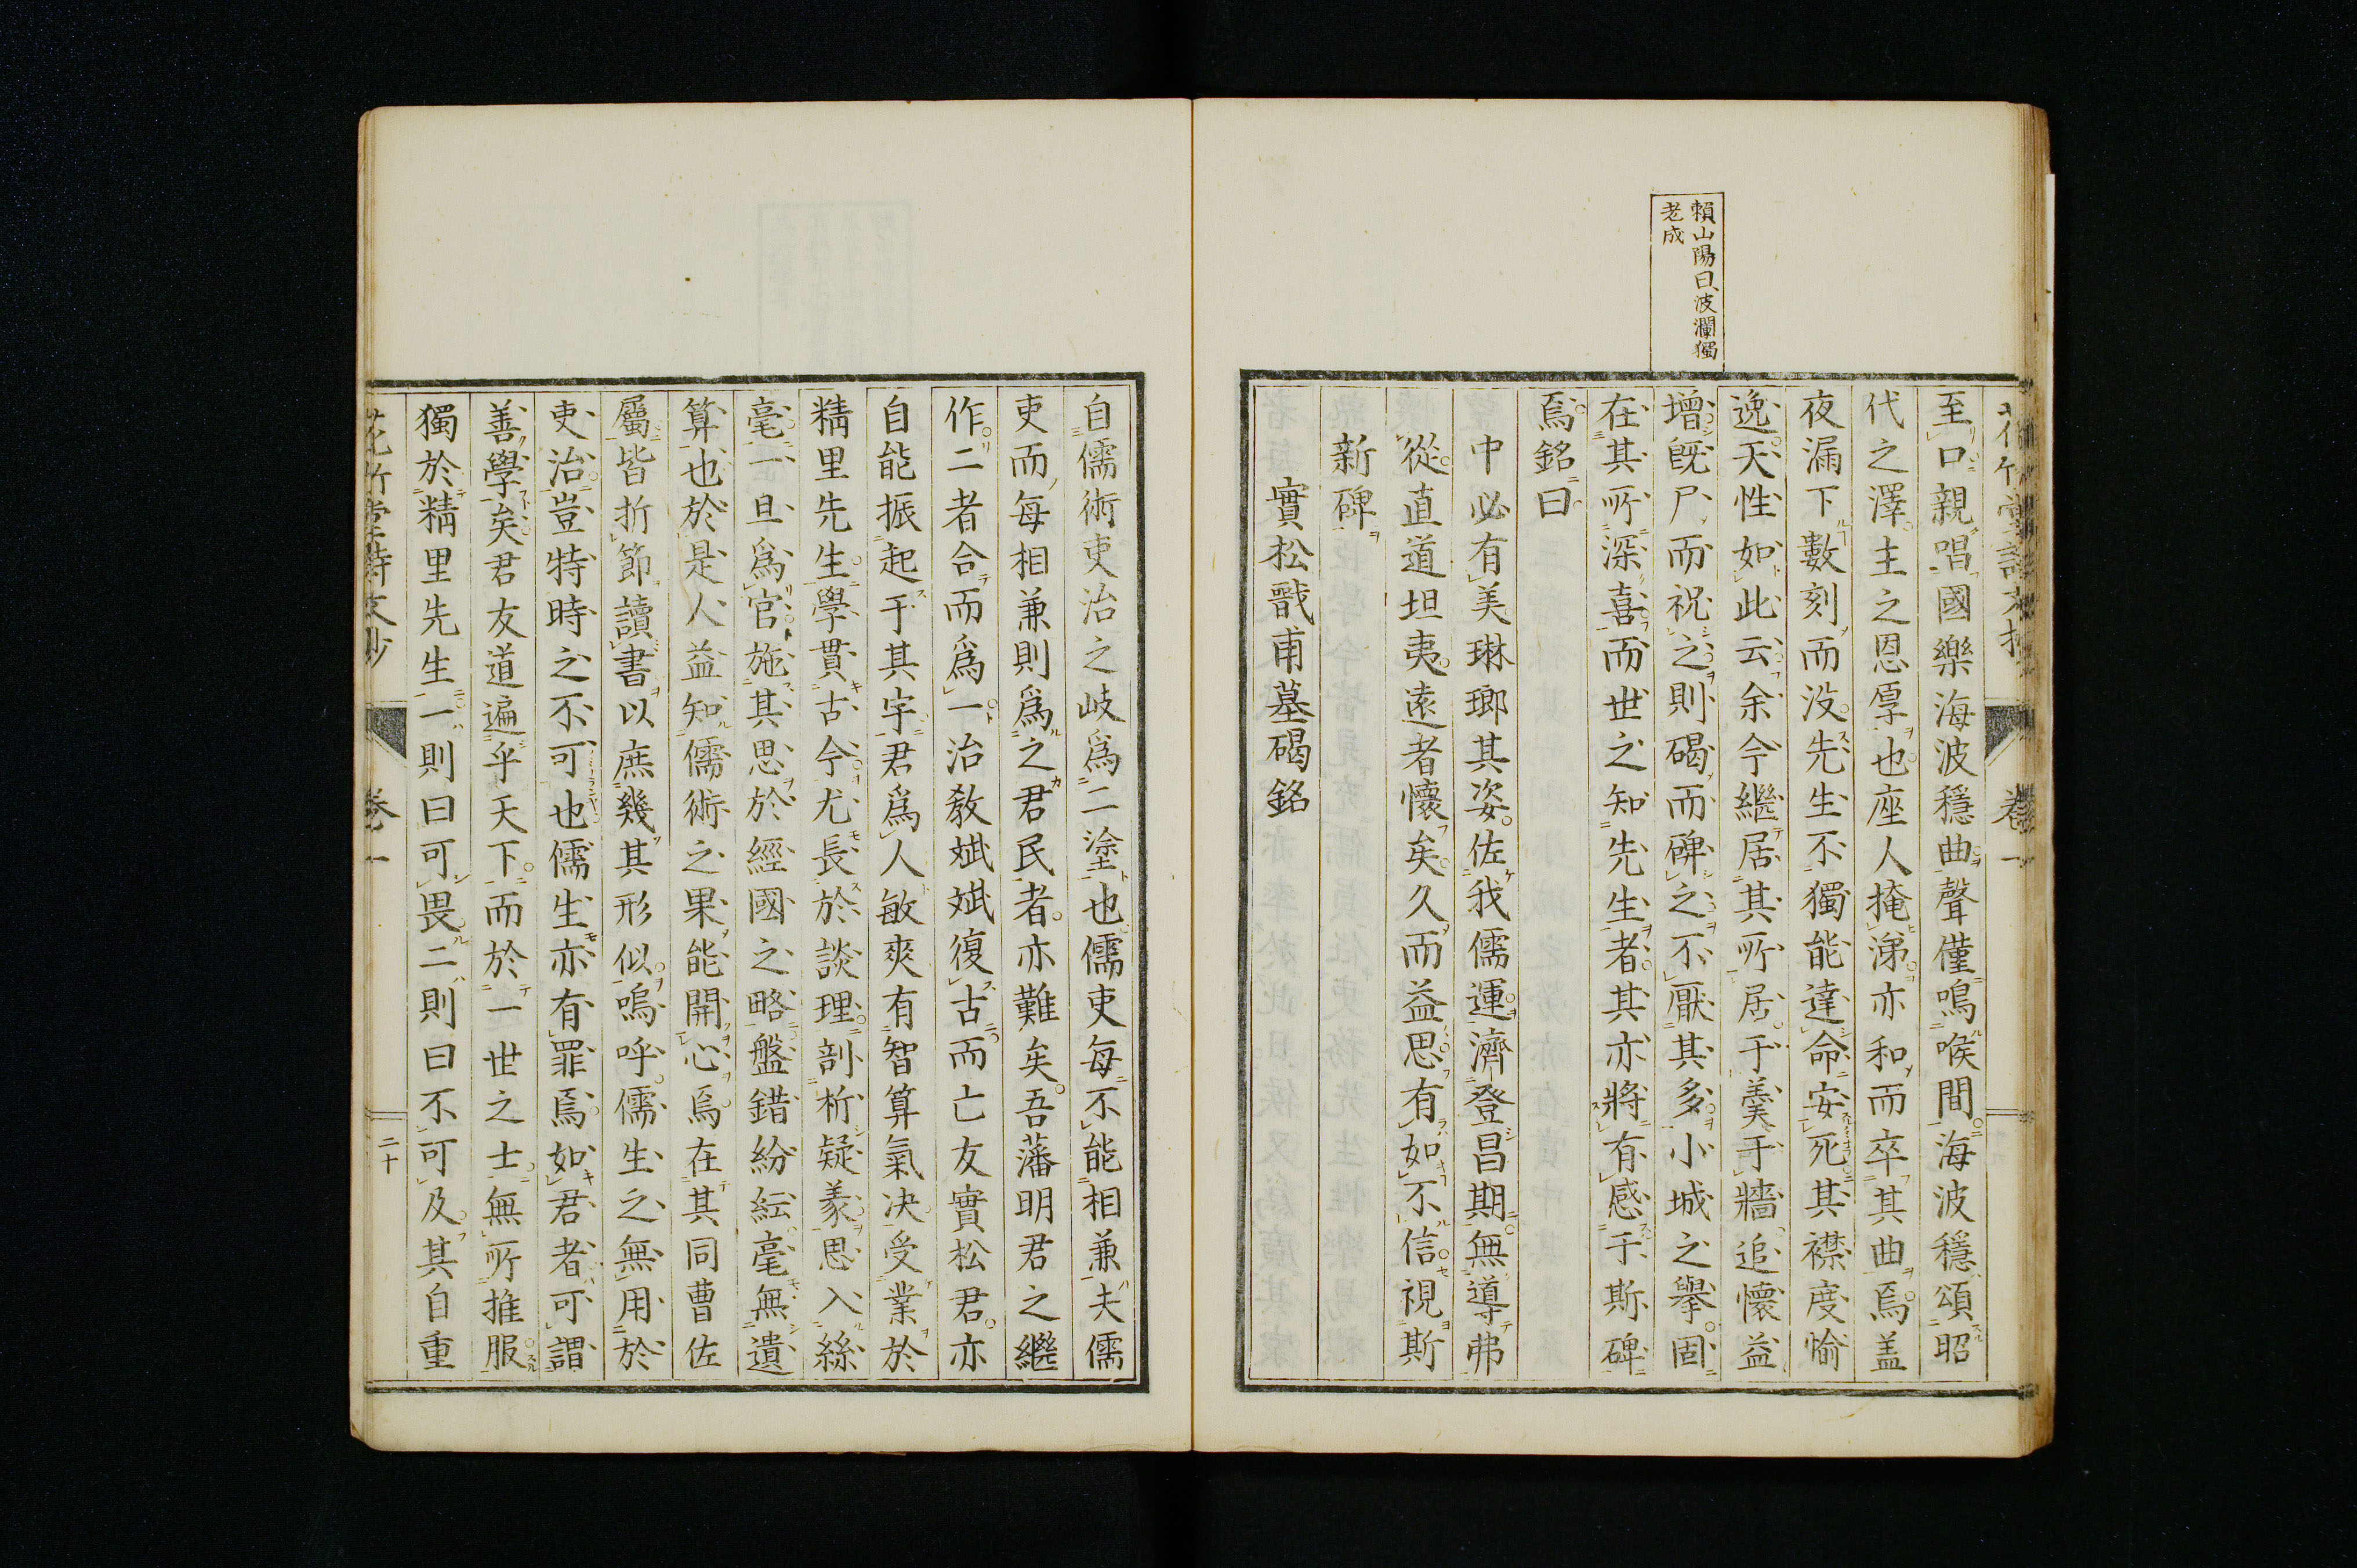 賴山陽曰波瀾獨
老成
至口親唱國樂海波穩曲聲僅鳴喉間海波穩頌昭
代之澤主之恩厚也座人掩涕亦和而卒其曲焉盖
夜漏下數刻而没先生不獨能達命安死其襟度愉
逸天性如此云余今繼居其所居于羹于牆追懷益
增既尸而祝之則碣而碑之不厭其多小城之擧固
在其所深喜而世之知先生者其亦將有感于斯碑
焉銘曰
中必有美琳瑯其姿佐我儒運濟登昌期無導弗
從直道坦夷遠者懷矣久而益思有如不信視斯
新碑
實松戩甫墓碣銘
自儒術吏治之岐爲二塗也儒吏每不能相兼夫儒
吏而每相兼則爲之君民者亦難矣吾藩明君之繼
作二者合而爲一治敎斌斌復古而亡友實松君亦
自能振起于其宇君爲人敏爽有智算氣决受業於
精里先生學貫古今尤長於談理剖析疑義思入絲
毫一旦爲官施其思於經國之略盤錯紛紜毫無遺
算也於是人益知儒術之果能開心焉在其同曹佐
屬皆折節讀書以庶幾其形似嗚呼儒生之無用於
吏治豈特時之不可也儒生亦有罪焉如君者可謂
善學矣君友道遍乎天下而於一世之士無所推服
獨於精里先生一則曰可畏二則曰不可及其自重
花竹堂詩文抄
卷一
二十